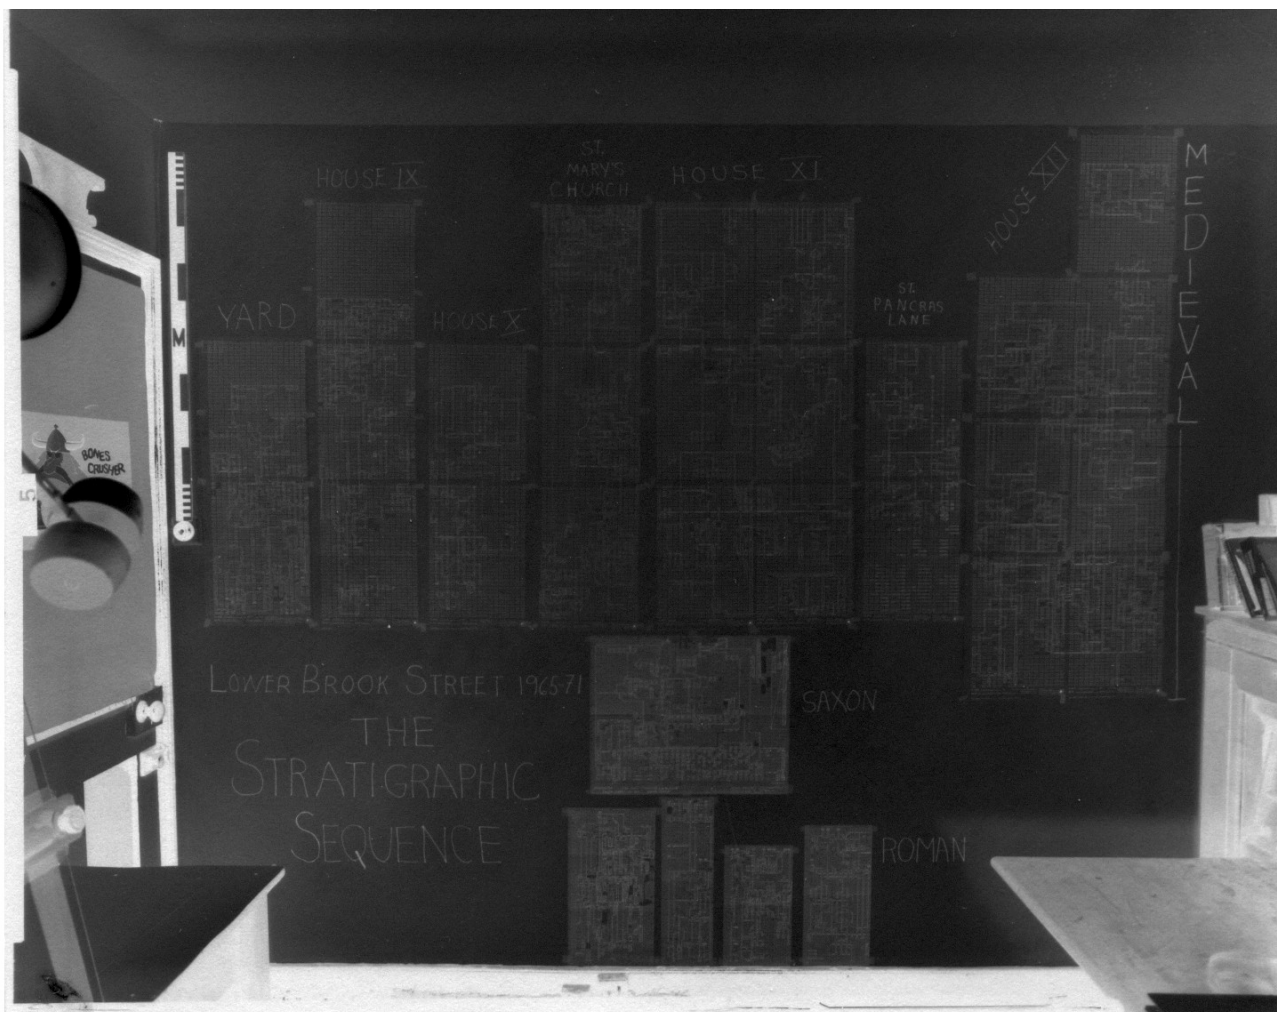 ST.
MARY'S
CHURCH
HOUSE IX
HOUSE XI
HOUSE XII
MEDIEVAL
YARD
HOUSE X
ST.
PANCRAS
LANE
M
BONES
CRUSHER
5
LOWER BROOK STREET 1965-71
THE
STRATIGRAPHIC
SEQUENCE
SAXON
ROMAN